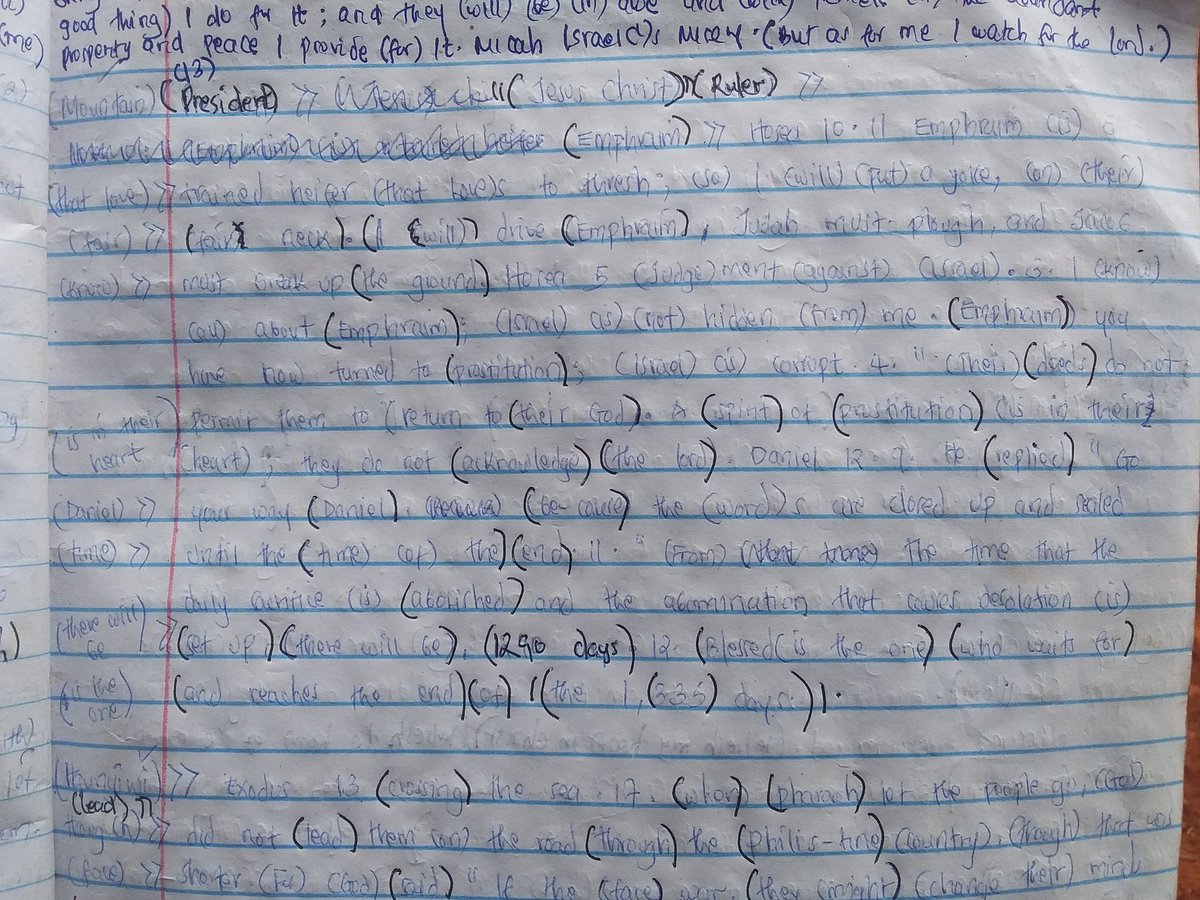 good thing) I do for it; and they (will) (be) (in) awe and
(me) property and peace I provide (for) it. Micah Israel(')s Micey. (But as for me I watch for the Lord.)
(Mountain) (President) >> (Jesus Christ) (Ruler) >>
(Emphraim) >> Hosea 10.11 Emphraim (is) a
(that love) >> trained heifer (that love)s to thresh; (so) I (will) (put) a yoke, (on) (their)
(fair) >> (fair neck). (I (will) drive (Emphraim), Judah must plough, and Jacob
(know) >> must break up (the ground.) Hosea 5 (Judge)ment (against) (Israel). 3. I (know)
(all) about (Emphraim); (Israel) is) (not) hidden (from) me. (Emphraim) you
have now turned to (prostitution); (israel) is) corrupt. 4. " (Their) (deeds) do not
(is in their heart permit them to (return to (their God). A (spirit) of (prostitution) (is in their
(heart); they do not (acknowledge) (the lord). Daniel 12.9. He (replied) " Go
(Daniel) >> your way (Daniel). (because) (be-cause) the (word)s are closed up and sealed
(time) >> until the (time) (of) the) (end. 11. " (From) the time that the
daily sacrifice (is) (abolished) and the abomination that causes desolation (is)
(there will be >> (set up) (there will be), (1290 days) 12. (Blessed (is the one) (who waits for)
(is the one) (and reaches the end) (of) ((the 1, (335) days.)).
>> Exodus 13 (crossing) the sea. 17. (when) (pharaoh) let the people go, (God)
(lead)
thoug(h) >> did not (lead) them (on) the road (through) the (Philis-tine) (country), (though) that was
(face) >> shorter. (For) (God) (said) " If the (face) war, (they (might) (change their) minds